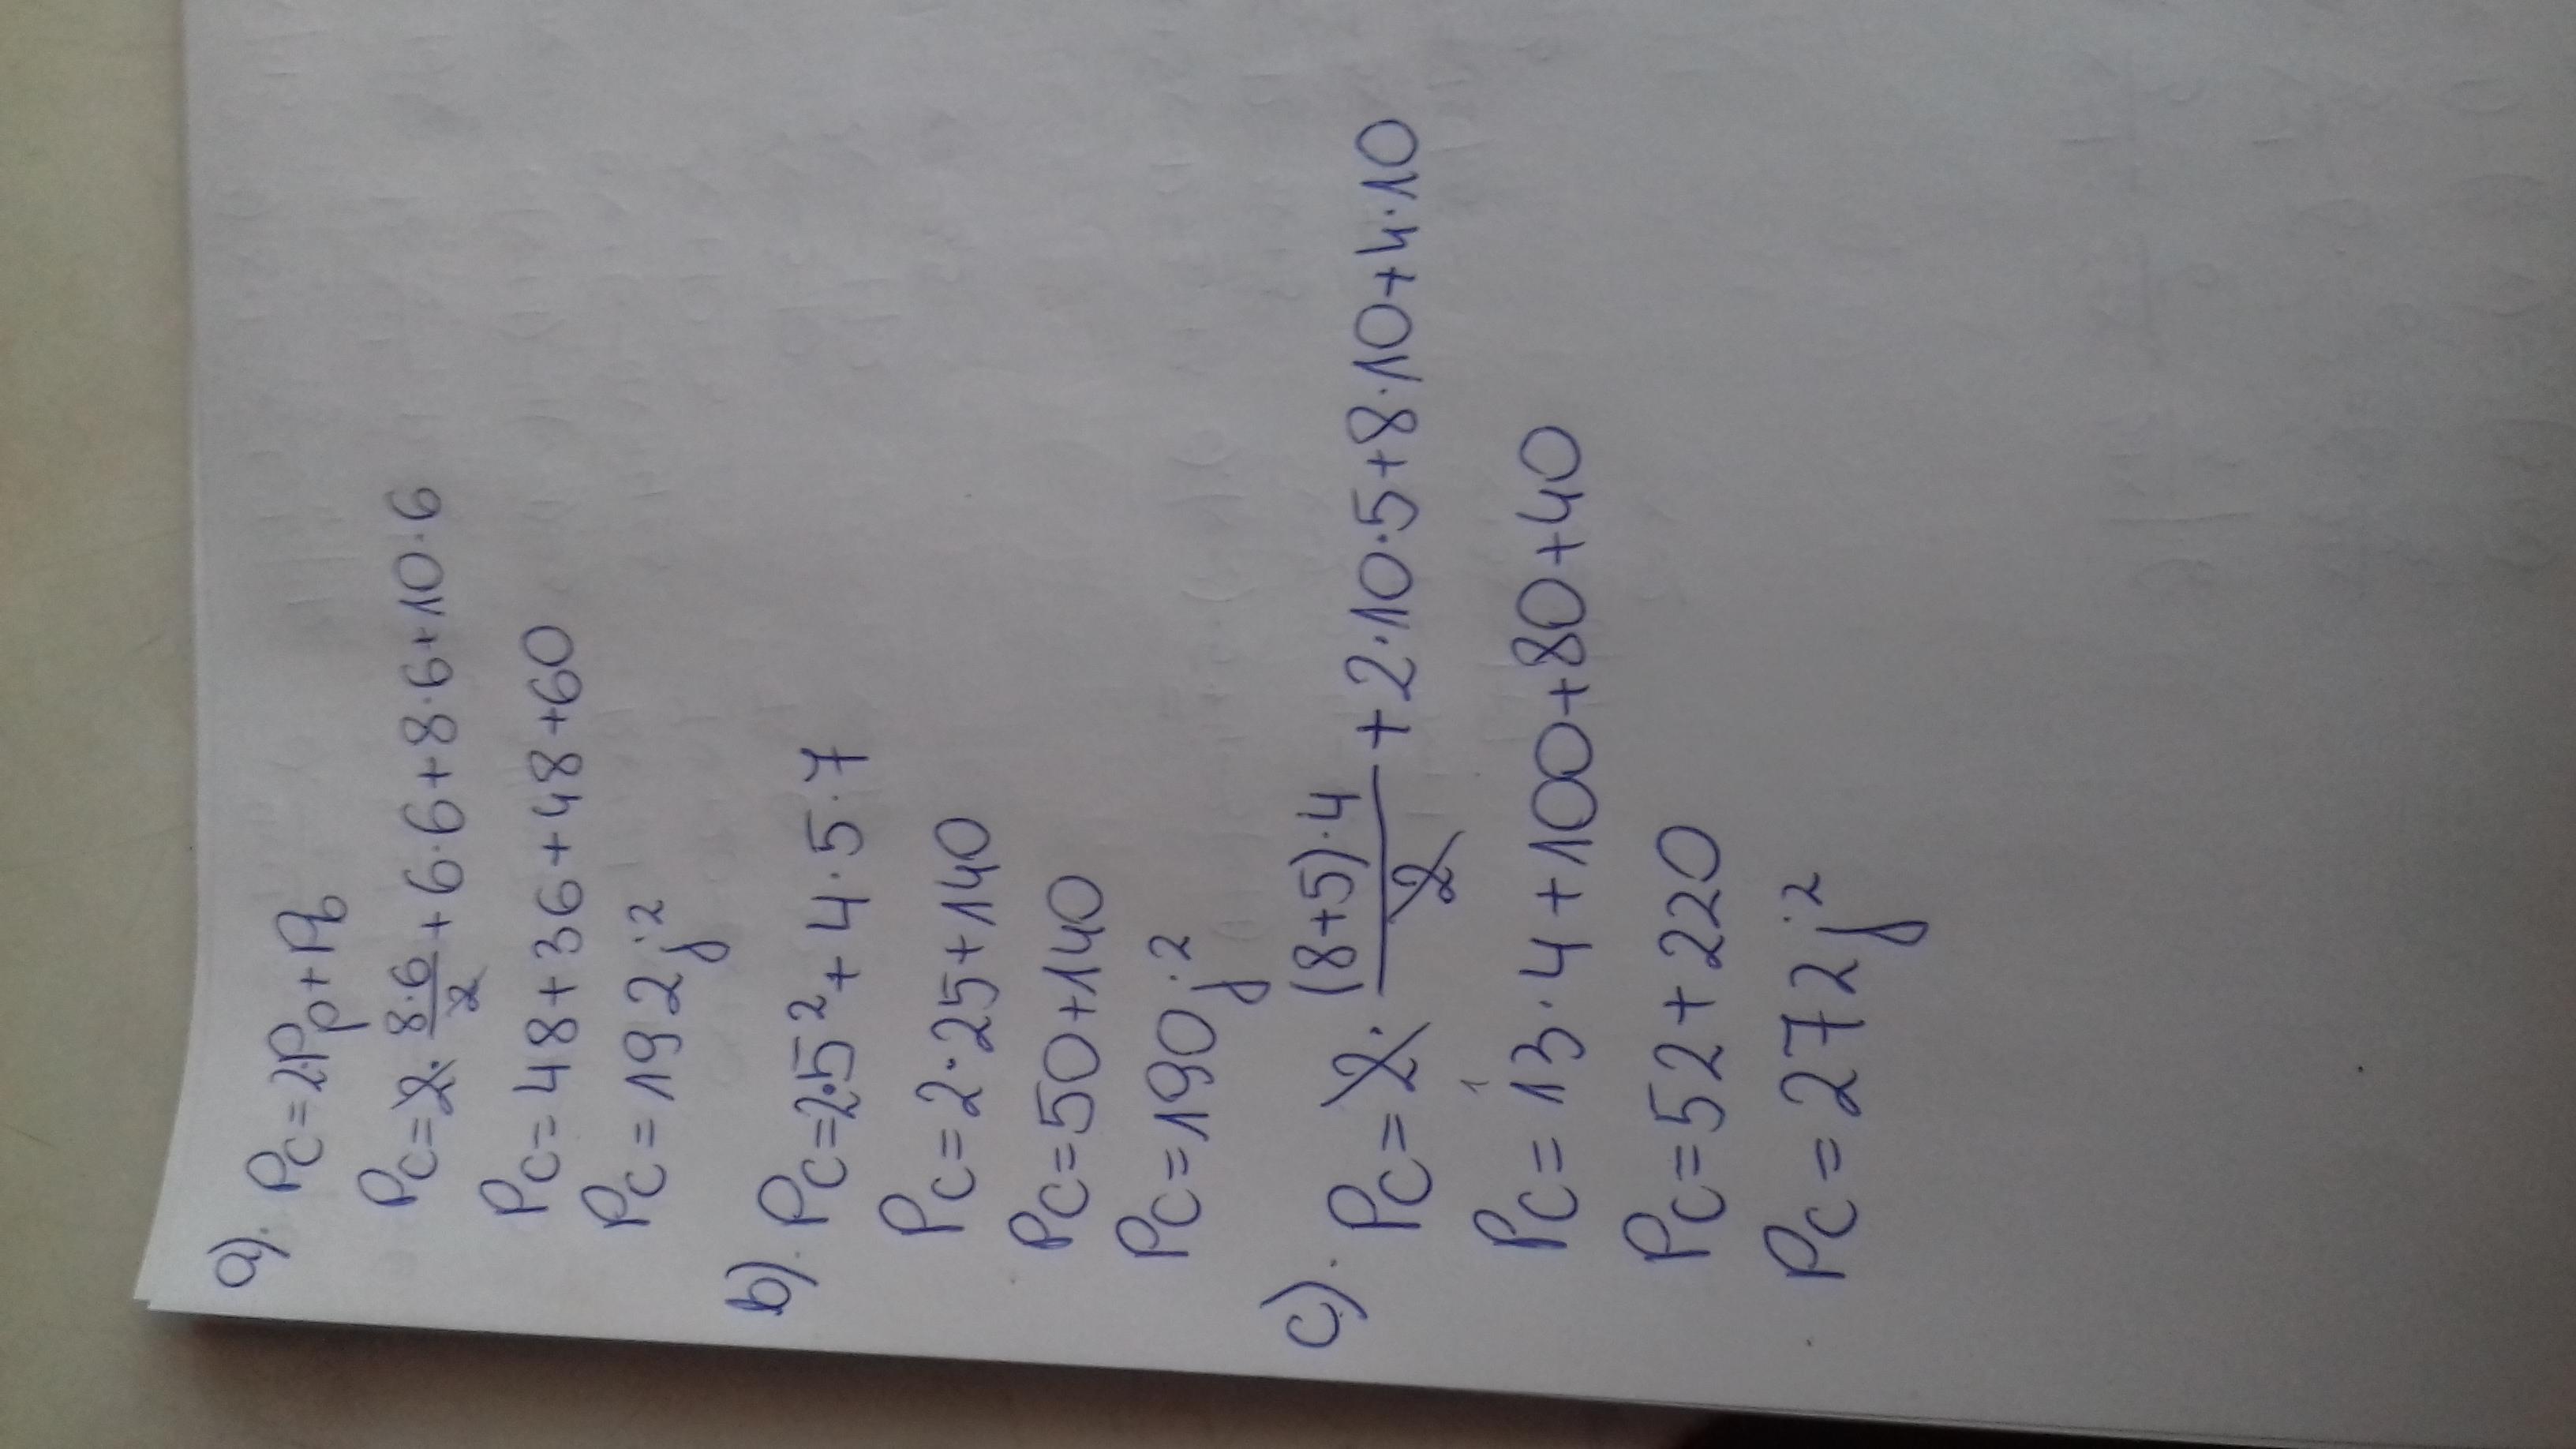 a). Pc=2Pp+Pb
Pc=2·8·6/2+6·6+8·6+10·6
Pc=48+36+48+60
Pc=192j²
b). Pc=2·5²+4·5·7
Pc=2·25+140
Pc=50+140
Pc=190j²
c). Pc=2·(8+5)·4/2+2·10·5+8·10+4·10
Pc=13·4+100+80+40
Pc=52+220
Pc=272j²